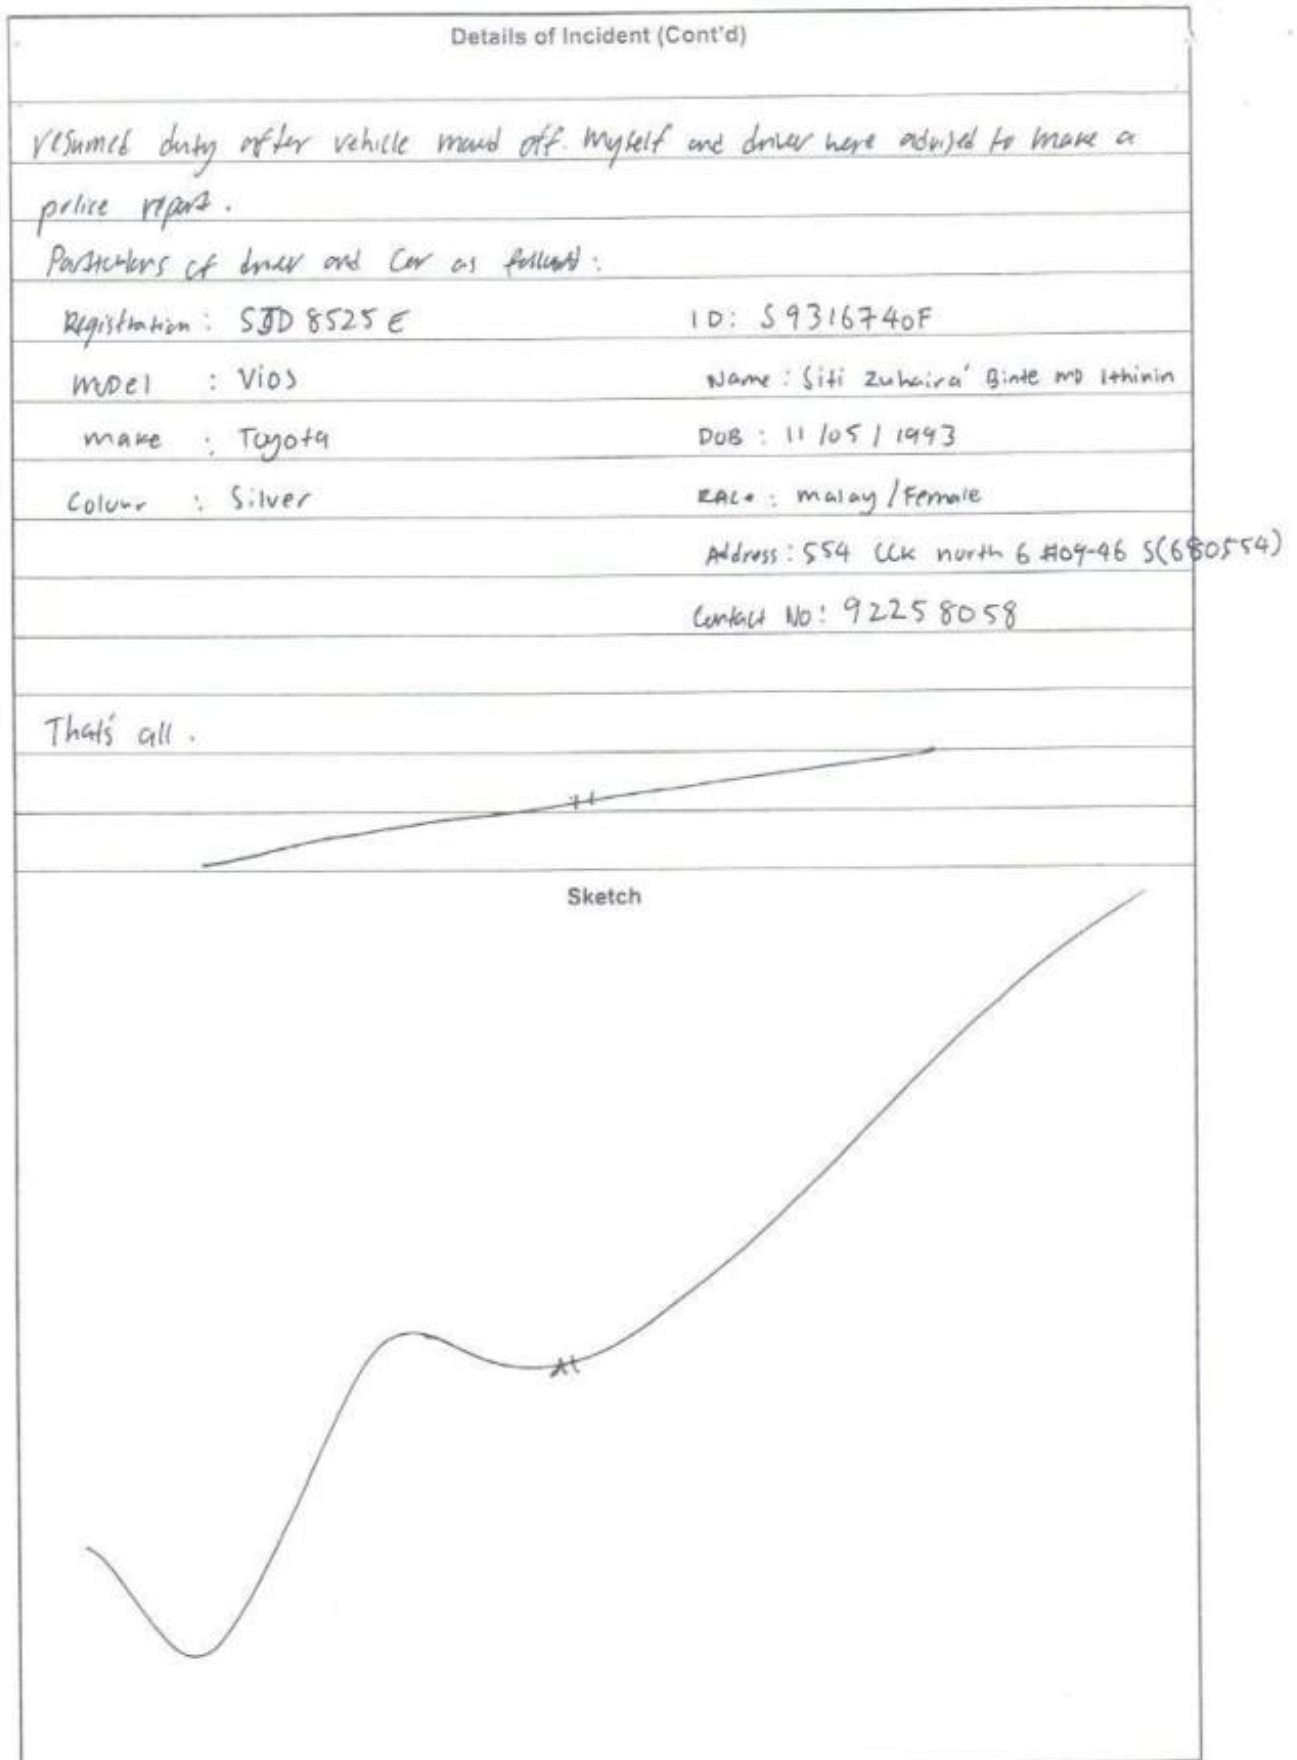 Details of Incident (Cont'd)
resumed duty after vehicle moved off. Myself and driver were advised to make a
police report.
Particulars of driver and Car as follows:
Registration : SJD 8525 E ID: S9316740F
model : Vios Name : Siti Zuhaira' Binte MD Ithinin
make : Toyota DOB : 11/05/1993
Colour : Silver RACe : malay / Female
Address : 554 CCK north 6 #09-96 S(680554)
Contact No: 92258058
That's all.
Sketch